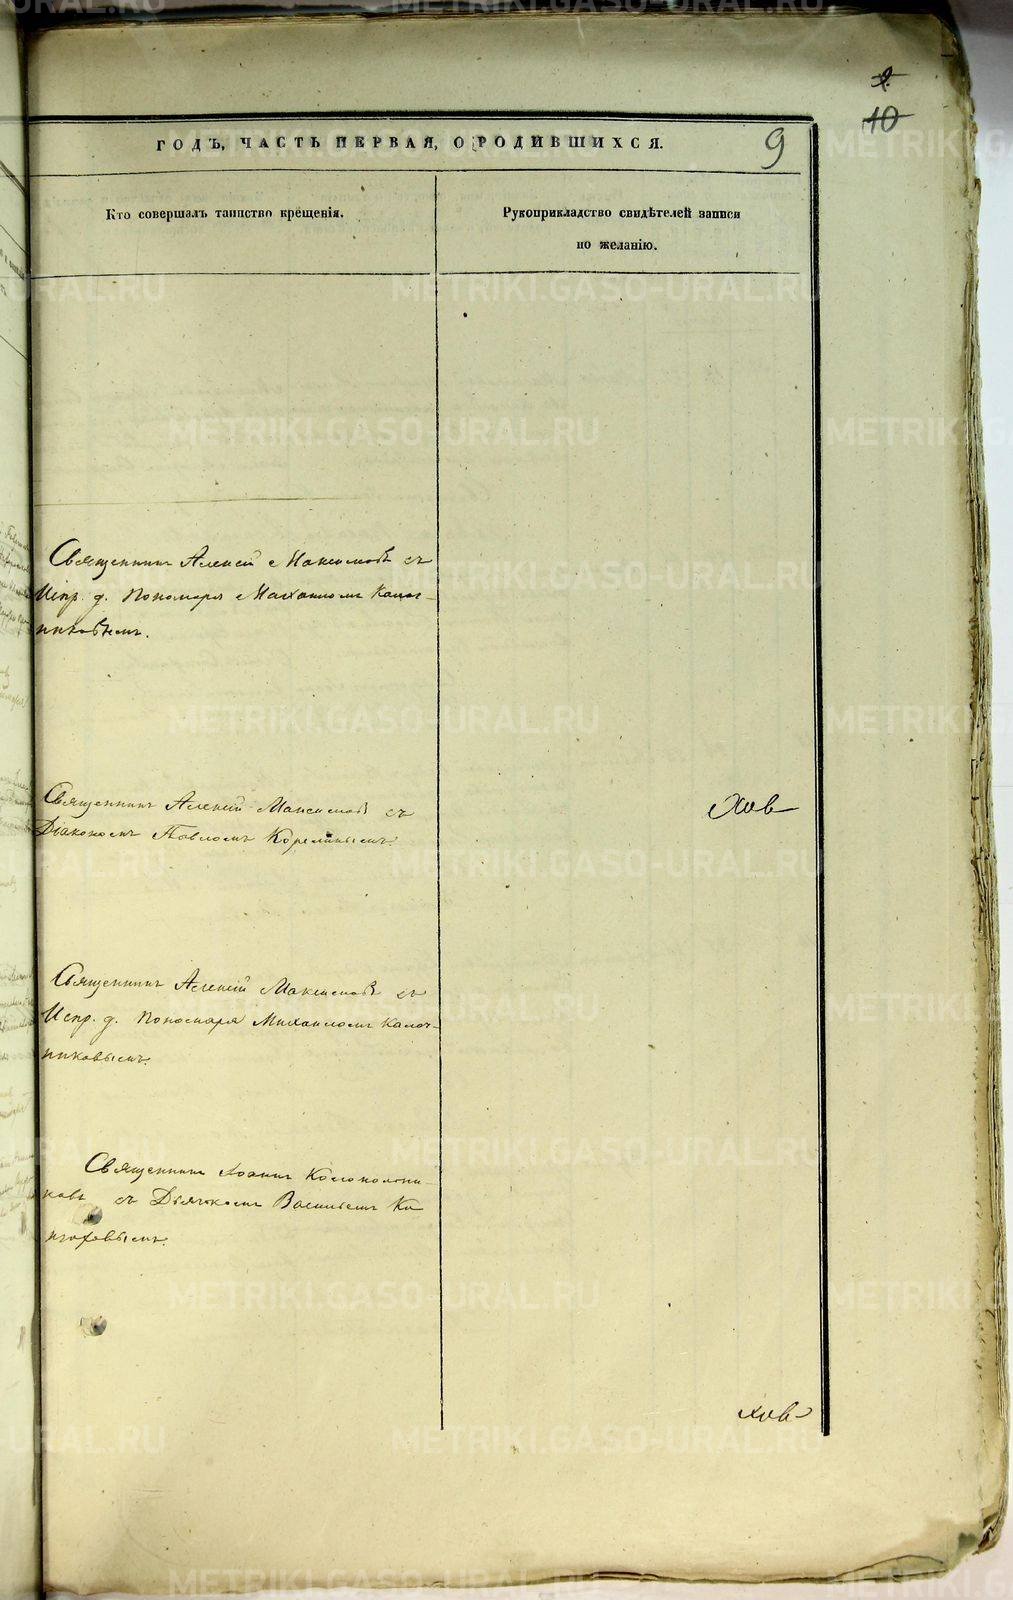 9
10
ГОДЪ, ЧАСТЬ ПЕРВАЯ, О РОДИВШИХСЯ.
9
Кто совершалъ таинство крещенія.
Рукоприкладство свидѣтелей записи
по желанію.
Священникъ Алексій Максимовъ съ
Испр. д. Пономаря Михаиломъ Калач-
никовымъ.
Священникъ Алексій Максимовъ съ
Діакономъ Павломъ Корелинымъ.
Священникъ Алексій Максимовъ съ
Испр. д. Пономаря Михаиломъ Калач-
никовымъ.
Священникъ Іоаннъ
съ Дьячкомъ Василіемъ
METRIKI.GASO-URAL.RU